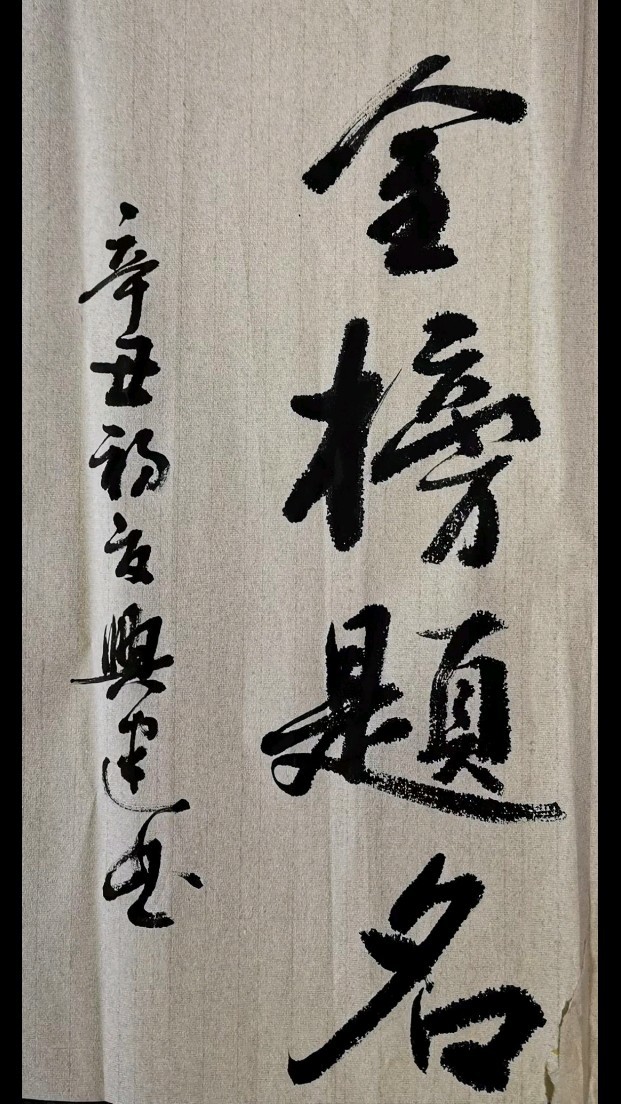 金榜題名
辛丑初夏興建书